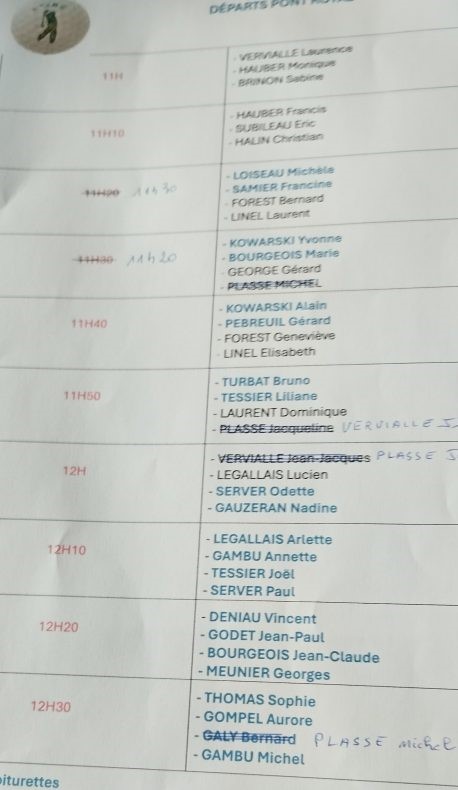 DÉPARTS PONT
11H
- VERVIALLE Laurence
- HAUBER Monique
- BRINON Sabine
11H10
- HAUBER Francis
- SUBILEAU Eric
- HALIN Christian
11H20 11h30
- LOISEAU Michèle
- SAMIER Francine
- FOREST Bernard
- LINEL Laurent
11H30 11h20
- KOWARSKI Yvonne
- BOURGEOIS Marie
- GEORGE Gérard
- PLASSE MICHEL
11H40
- KOWARSKI Alain
- PEBREUIL Gérard
- FOREST Geneviève
- LINEL Elisabeth
11H50
- TURBAT Bruno
- TESSIER Liliane
- LAURENT Dominique
- PLASSE Jacqueline VERVIALLE J
12H
- VERVIALLE Jean-Jacques PLASSE J
- LEGALLAIS Lucien
- SERVER Odette
- GAUZERAN Nadine
12H10
- LEGALLAIS Arlette
- GAMBU Annette
- TESSIER Joël
- SERVER Paul
12H20
- DENIAU Vincent
- GODET Jean-Paul
- BOURGEOIS Jean-Claude
- MEUNIER Georges
12H30
- THOMAS Sophie
- GOMPEL Aurore
- GALY Bernard PLASSE Michel
- GAMBU Michel
oiturettes